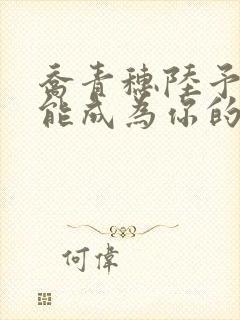 喬青穗陸予
能成為你的
何偉